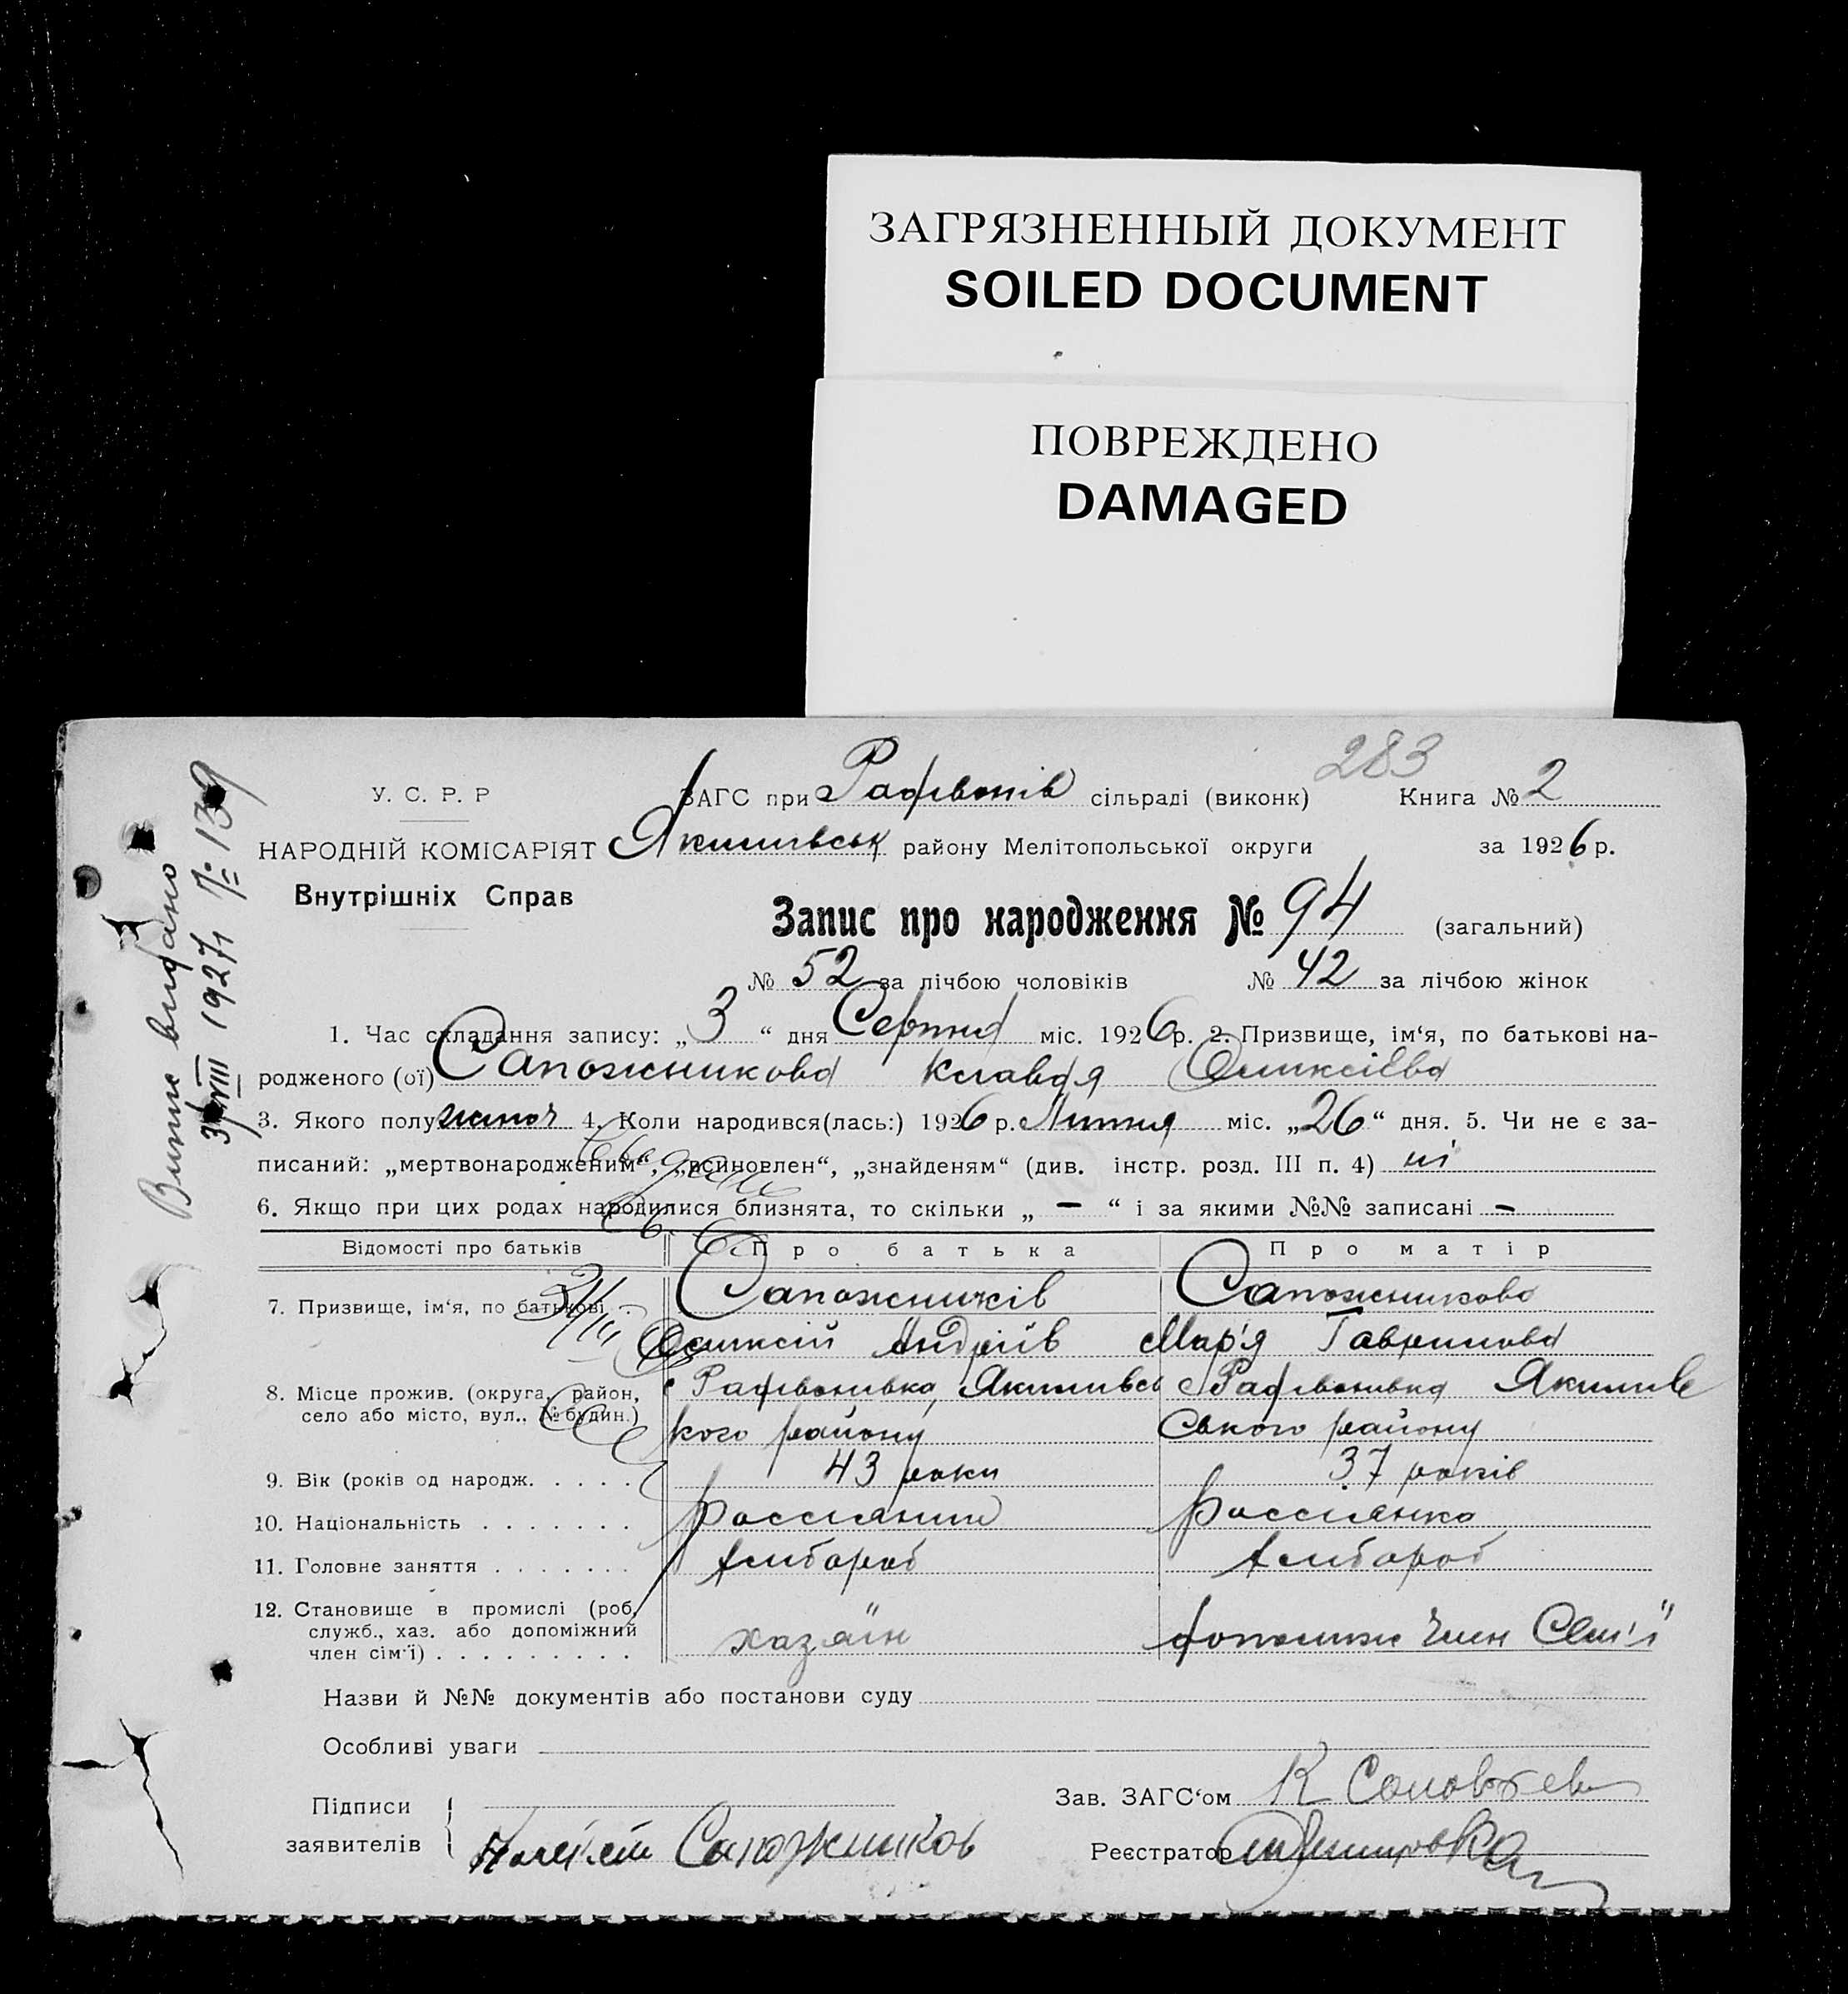 ЗАГРЯЗНЕННЫЙ ДОКУМЕНТ
SOILED DOCUMENT
ПОВРЕЖДЕНО
DAMAGED
283
У. С. Р. Р
ЗАГС при сільраді (виконк) Книга № 2
НАРОДНІЙ КОМІСАРІЯТ Якимівськ району Мелітопольської округи за 1926 р.
Внутрішніх Справ
Запис про народження № 94 (загальний)
№ 52 за лічбою чоловіків № 42 за лічбою жінок
1. Час складання запису: „3“ дня Серпня міс. 1926 р. 2. Призвище, ім‘я, по батькові на-
родженого (ої) Сапожникова Клавдя Оликсіїва
3. Якого полу жиноч 4. Коли народився(лась:) 1926 р. Липня міс. „26“ дня. 5. Чи не є за-
писаний: „мертвонародженим“, „всиновлен“, „знайденям“ (див. інстр. розд. III п. 4) ні
6. Якщо при цих родах народилися близнята, то скільки „ – “ і за якими №№ записані –
Відомості про батьків Про батька Про матір
7. Призвище, ім‘я, по батькові Сапожників Сапожникова
Оликсій Андріїв Мар'я Гаврилова
8. Місце прожив. (округа, район, Якимівсь Якимів
село або місто, вул., № будин.) кого району ського району
9. Вік (років од народж. . . . . 43 роки 37 років
10. Національність . . . . . . . россіянин россиянка
11. Головне заняття . . . . . . . хлібороб хлібороб
12. Становище в промислі (роб,
служб., хаз. або допоміжний хазяїн допоміжн член Сем'ї
член сім‘ї) . . . . . . . . .
Назви й №№ документів або постанови суду
Особливі уваги
Зав. ЗАГС‘ом К Соловьев
Підписи
заявителів Сапожников Реєстратор
Випис видано
3/VIII 1927 р № 139